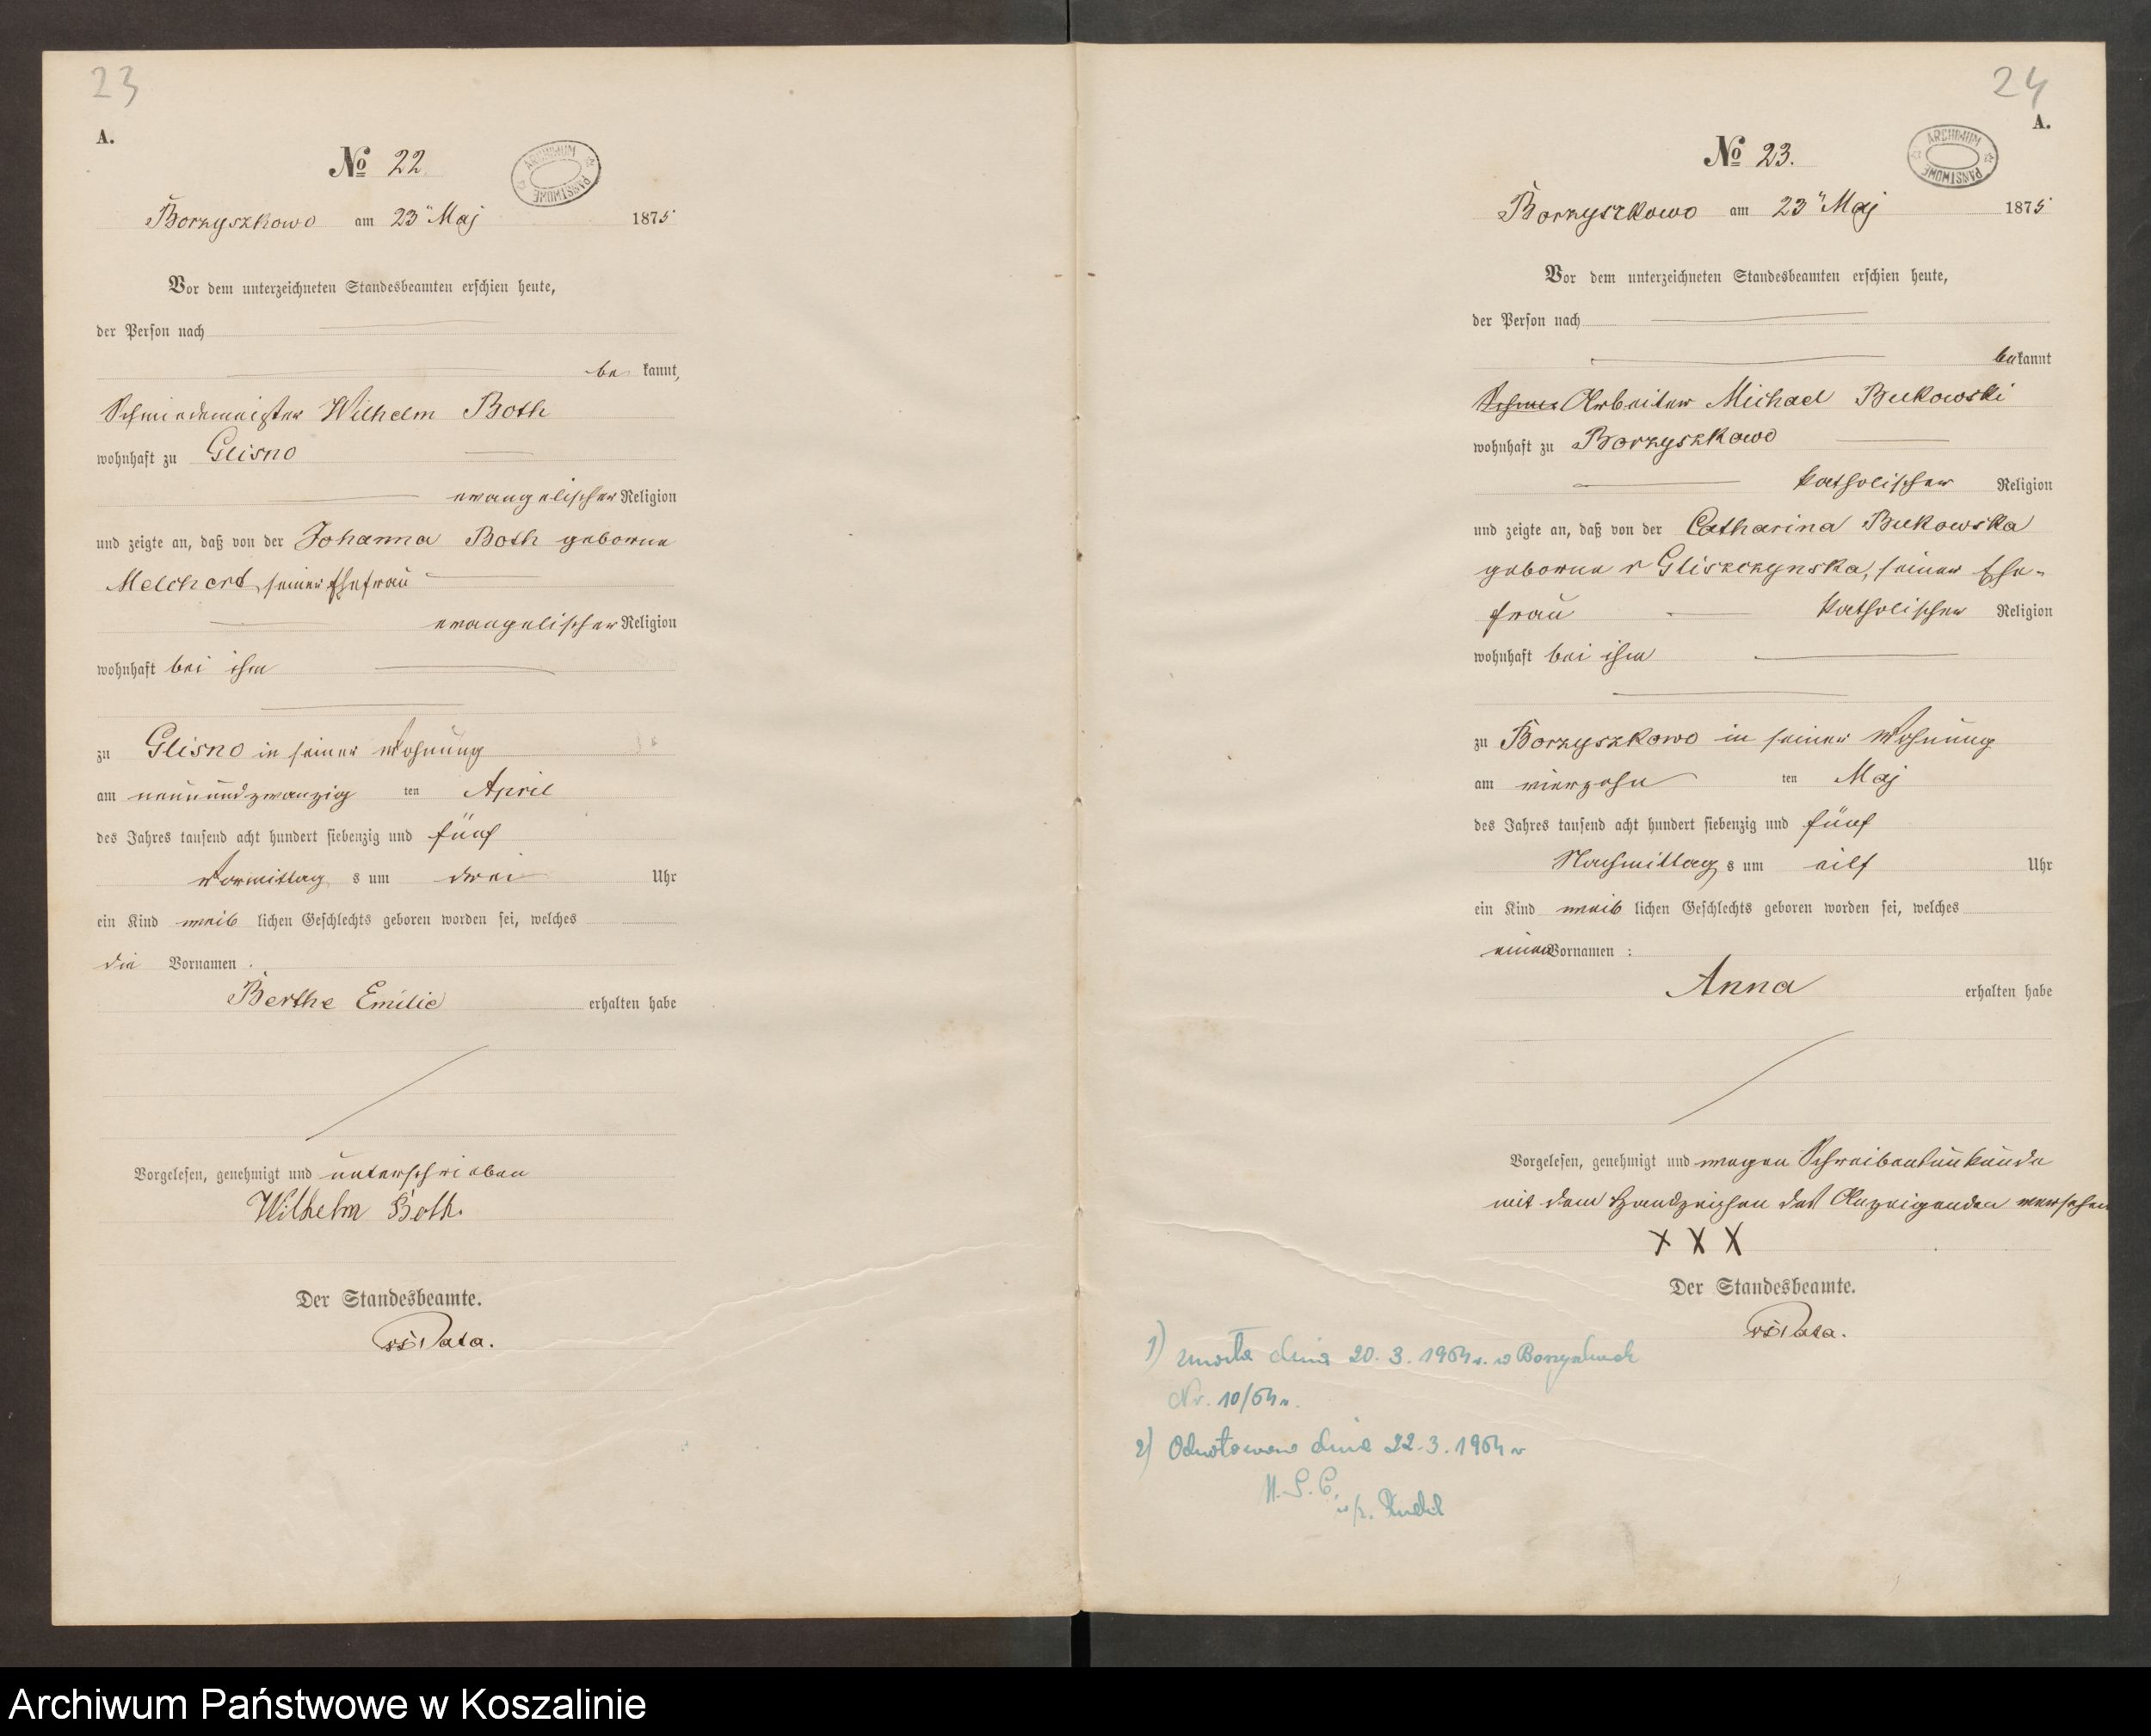 23
A.
No 22.
ARCHIWUM PAŃSTWOWE
Borzyszkowo am 23ⁿ Maj 1875
Vor dem unterzeichneten Standesbeamten erschien heute,
der Person nach
be kannt,
Schmiedemeister Wilhelm Both
wohnhaft zu Glisno
evangelischer Religion
und zeigte an, daß von der Johanna Both geborne
Melchert, seiner Ehefrau
evangelischer Religion
wohnhaft bei ihm
zu Glisno in seiner Wohnung
am neunundzwanzig ten April
des Jahres tausend acht hundert siebenzig und fünf
Vormittag s um drei Uhr
ein Kind weib lichen Geschlechts geboren worden sei, welches
die Vornamen :
Berthe Emilie erhalten habe
Vorgelesen, genehmigt und unterschrieben
Wilhelm Both.
Der Standesbeamte.
24
A.
No 23.
ARCHIWUM PAŃSTWOWE
Borzyszkowo am 23ⁿ Maj 1875
Vor dem unterzeichneten Standesbeamten erschien heute,
der Person nach
be kannt
Arbeiter Michael Bukowski
wohnhaft zu Borzyszkowo
katholischer Religion
und zeigte an, daß von der Catharina Bukowska
geborne v Gliszczynska, seiner Ehe-
frau katholischer Religion
wohnhaft bei ihm
zu Borzyszkowo in seiner Wohnung
am vierzehn ten Maj
des Jahres tausend acht hundert siebenzig und fünf
Nachmittag s um eilf Uhr
ein Kind weib lichen Geschlechts geboren worden sei, welches
einen Vornamen :
Anna erhalten habe
Vorgelesen, genehmigt und wegen Schreibensunkunde
mit dem Handzeichen des Anzeigenden versehen
X X X
Der Standesbeamte.
1) zmarła dnia 20. 3. 1964 r. w
Nr. 10/64 r.
2) Odnotowano dnia 22.3.1964 r
Archiwum Państwowe w Koszalinie